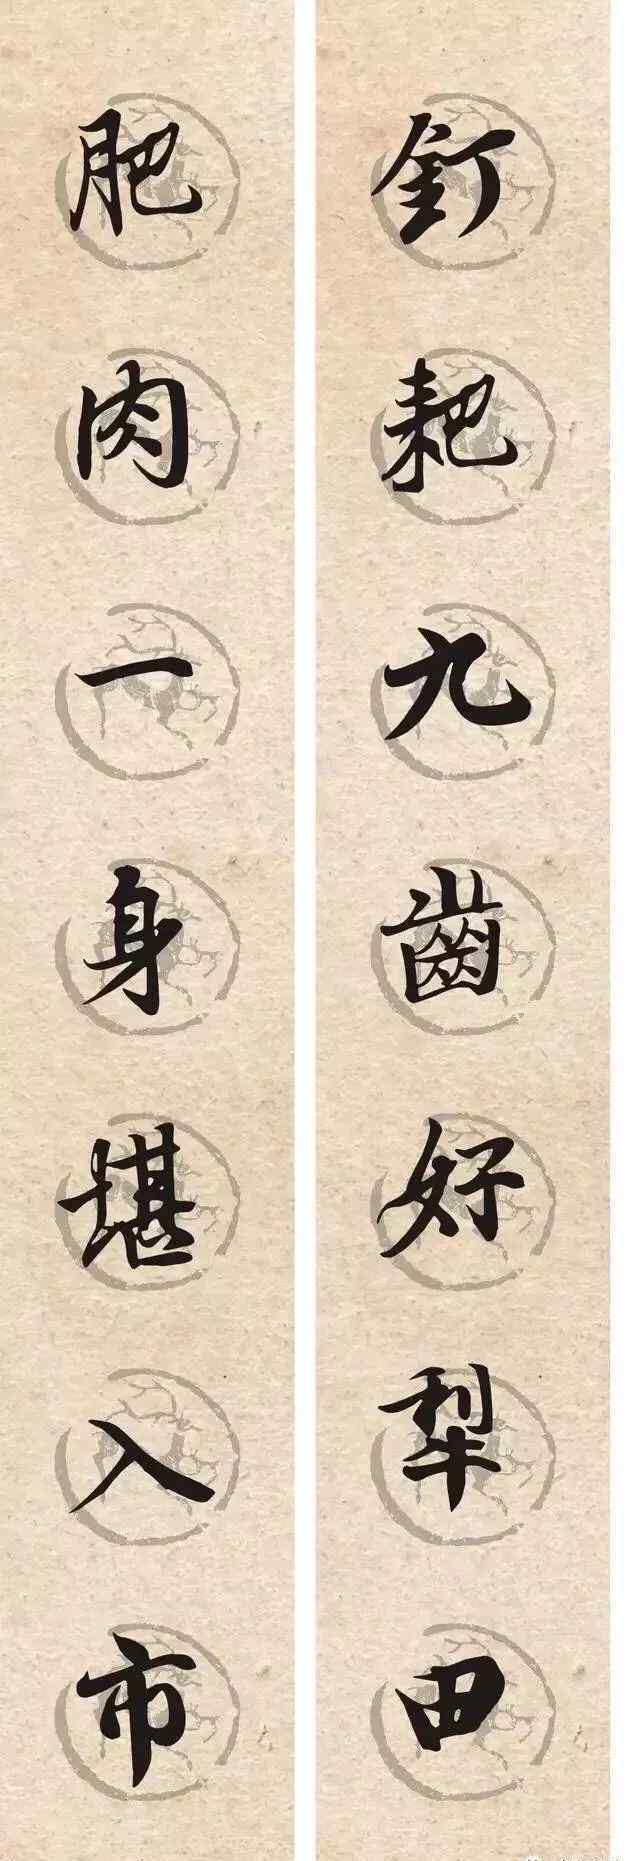 釘耙九齒好犁田
肥肉一身堪入市